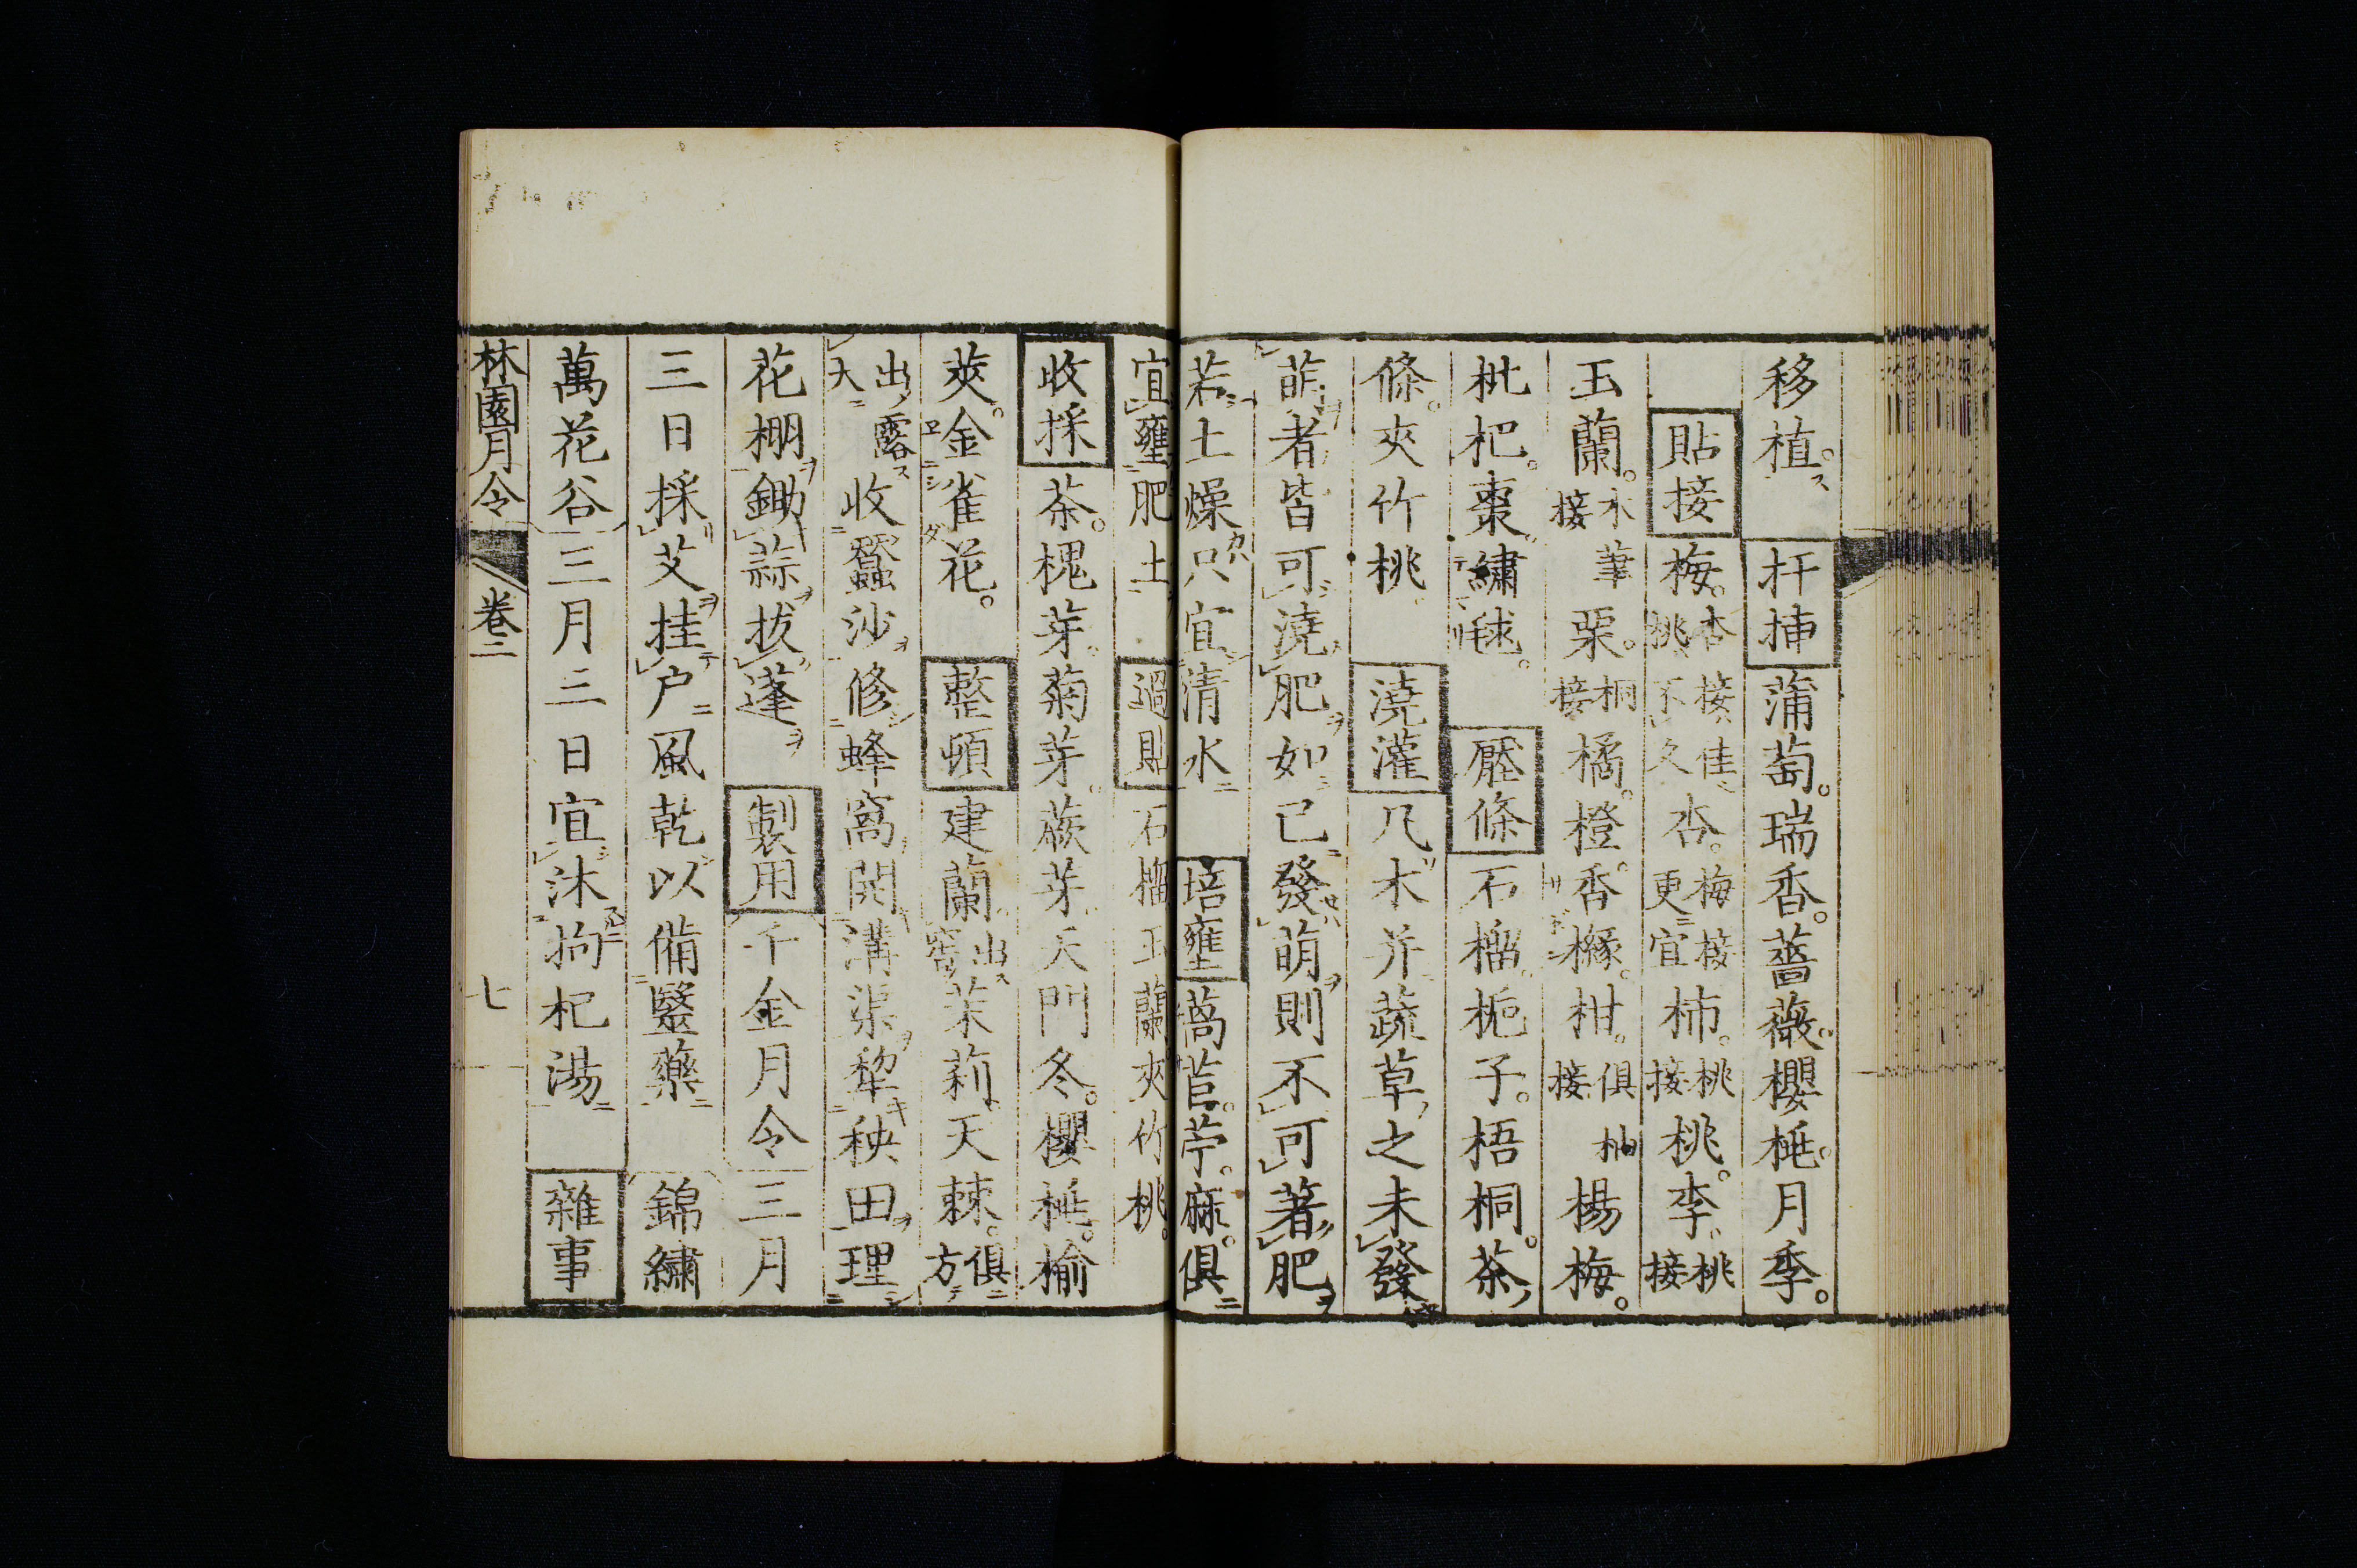 移植。扦挿蒲萄。瑞香。薔薇。櫻桃。月季。
貼接梅。杏接佳桃不久杏。梅接更宜柿。桃接桃。李。桃接
玉蘭。木筆接栗。桐接橘。橙。香櫞。柑。俱柚接楊梅。
枇杷。棗。繡毬。壓條石榴。梔子。梧桐。茶
條。夾竹桃澆灌凡木并蔬草之未發
萌者皆可澆肥如已發萌則不可著肥
若土燥只宜清水培壅萵苣。苧。麻。俱
宜壅肥土過貼石榴玉蘭夾竹桃。
收採茶。槐芽。菊芽。蕨芽。天門冬。櫻桃。榆
莢。金雀花。整頓建蘭出窖茉莉。天棘。俱方
出露天收蠶沙修蜂窩開溝渠犂秧田理
花棚鋤蒜拔蓬製用千金月令三月
三日採艾挂戸風乾以備醫藥錦繡
萬花谷三月三日宜沐拘杞湯雜事
林園月令 卷二 七